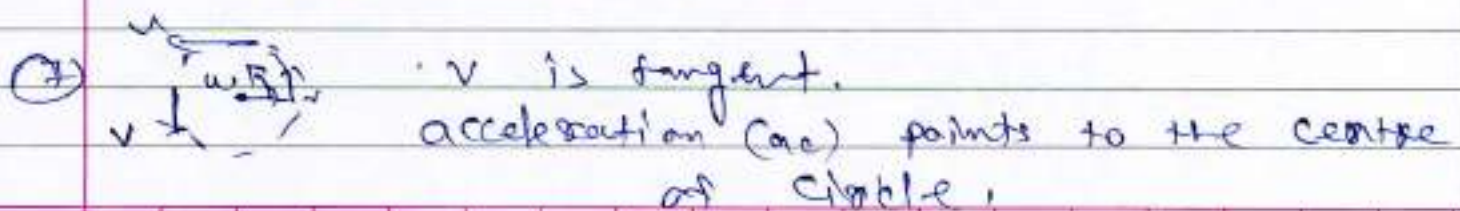 7
v
w
v
v is tangent.
acceleration (ac) points to the centre
of circle.